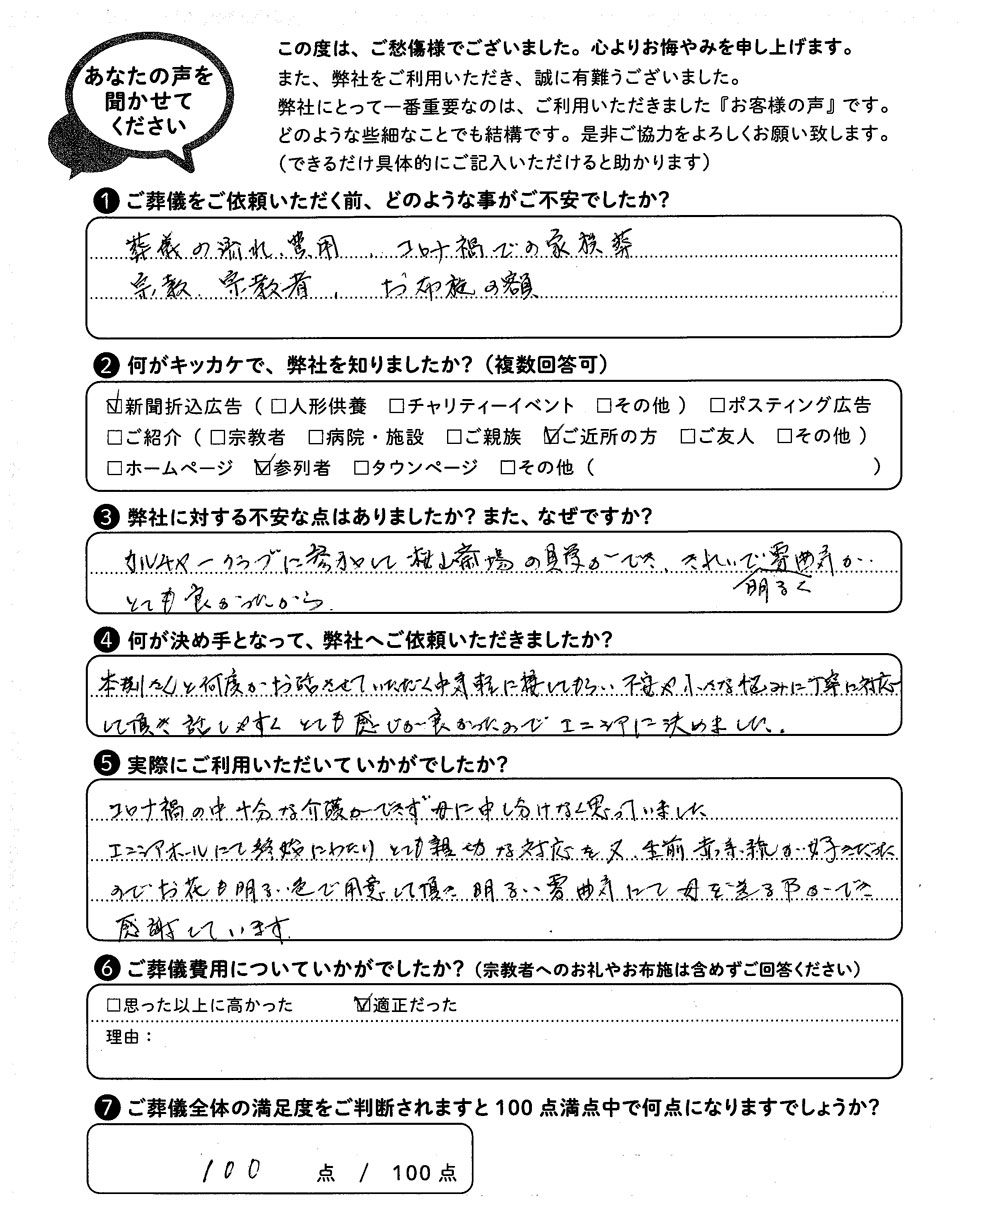 あなたの声を
聞かせて
ください
この度は、ご愁傷様でございました。心よりお悔やみを申し上げます。
また、弊社をご利用いただき、誠に有難うございました。
弊社にとって一番重要なのは、ご利用いただきました『お客様の声』です。
どのような些細なことでも結構です。是非ご協力をよろしくお願い致します。
（できるだけ具体的にご記入いただけると助かります）
1 ご葬儀をご依頼いただく前、どのような事がご不安でしたか？
葬儀の流れ、費用、コロナ禍での家族葬
宗教、宗教者、お布施の額
2 何がキッカケで、弊社を知りましたか？（複数回答可）
☑新聞折込広告（□人形供養 □チャリティーイベント □その他） □ポスティング広告
□ご紹介（□宗教者 □病院・施設 □ご親族 ☑ご近所の方 □ご友人 □その他）
□ホームページ ☑参列者 □タウンページ □その他（ ）
3 弊社に対する不安な点はありましたか？また、なぜですか？
カルチャークラブに参加して 斎場の見学ができ、きれいで雰囲気が
明るく
とても良かったから。
4 何が決め手となって、弊社へご依頼いただきましたか？
さんと何度かお話させていただく中気軽に接してもらい 不安や小さな悩みに丁寧に対応
して頂き 話しやすく とても感じが良かったのでエニシアに決めました。
5 実際にご利用いただいていかがでしたか？
コロナ禍の中十分な介護ができず母に申し分けなく思っていました
エニシアホールにて終始にわたりとても親切な対応を又、生前 赤系統が好きだった
のでお花も明るい色で用意して頂き 明るい雰囲気にて母を送る事ができ
感謝しています。
6 ご葬儀費用についていかがでしたか？（宗教者へのお礼やお布施は含めずご回答ください）
□思った以上に高かった ☑適正だった
理由：
7 ご葬儀全体の満足度をご判断されますと100点満点中で何点になりますでしょうか？
100 点 / 100点